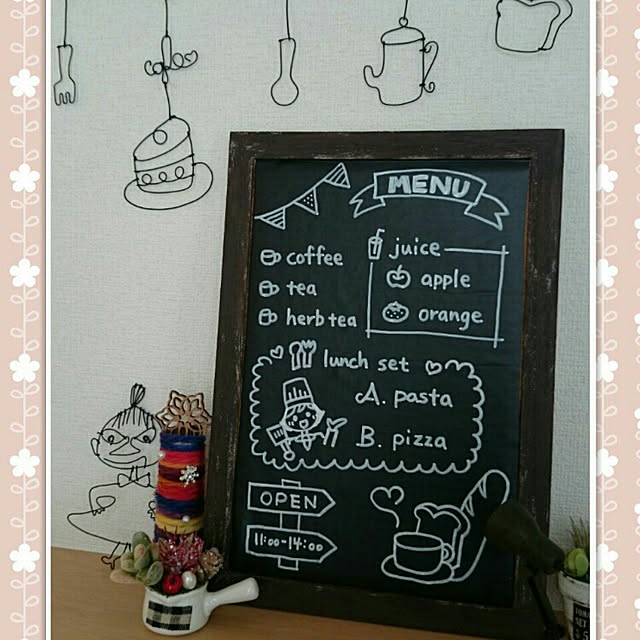 cake
MENU
coffee
tea
herb tea
juice
apple
orange
lunch set
A. pasta
B. pizza
OPEN
11:00-14:00